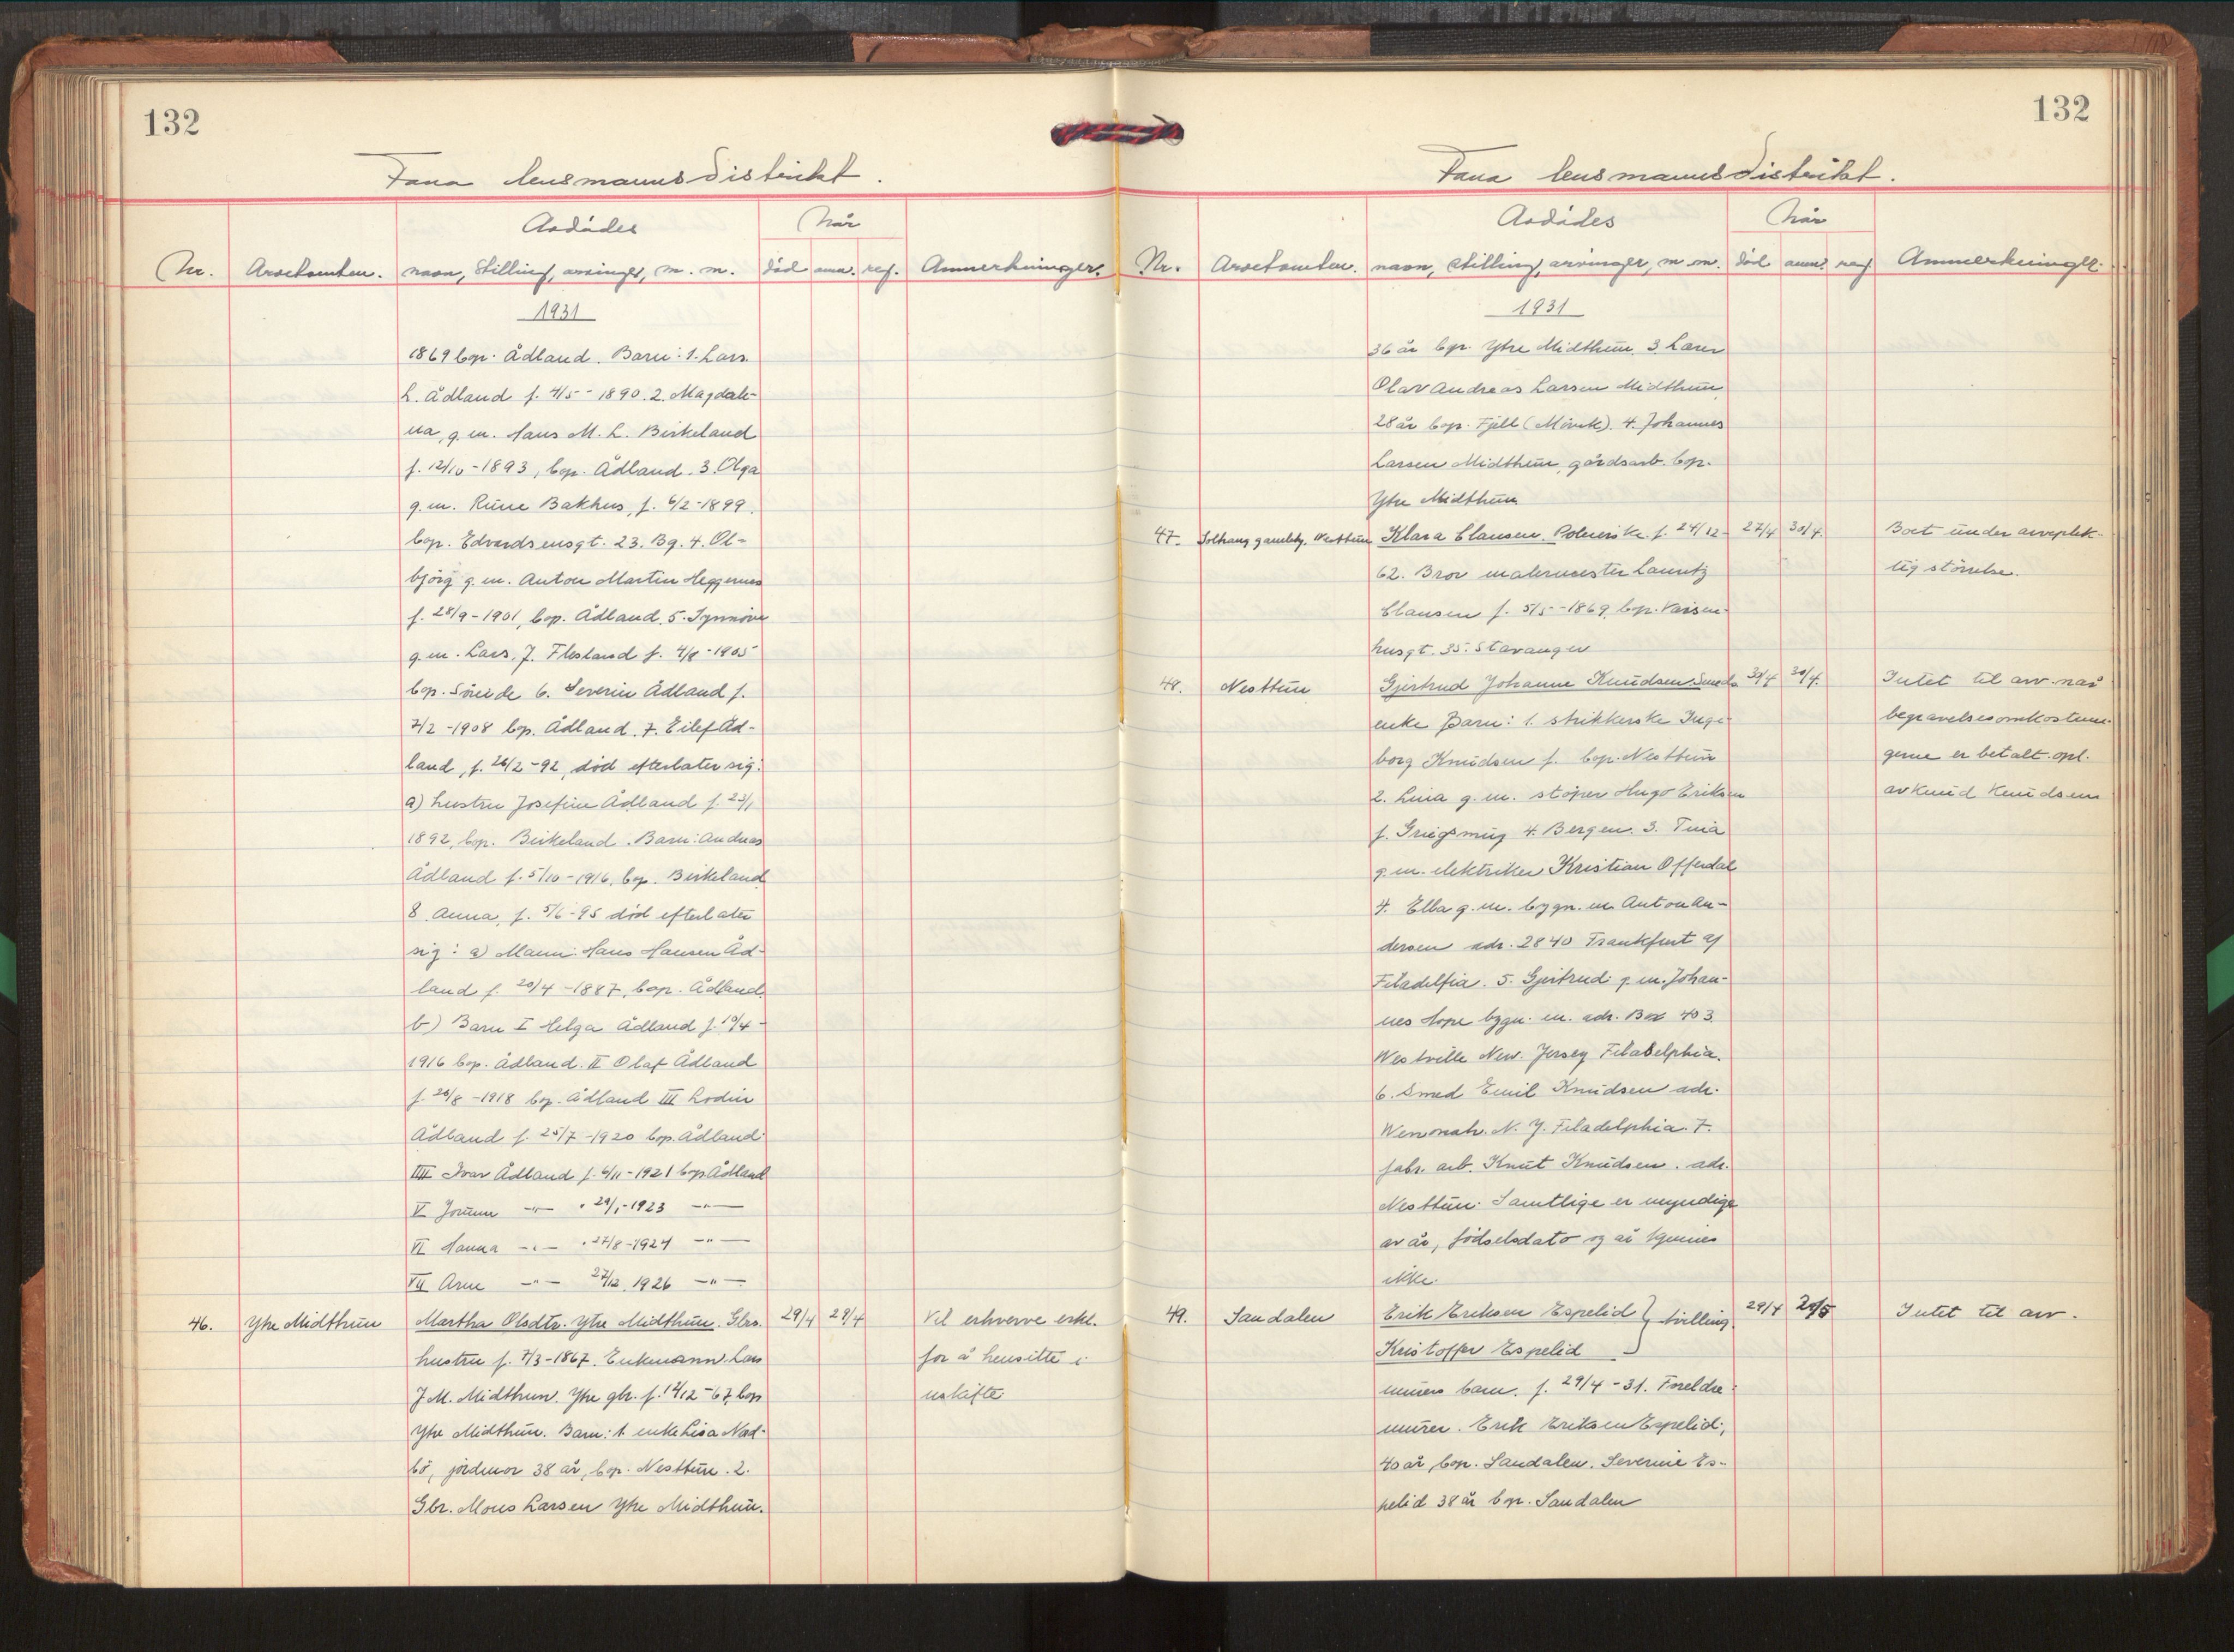 132
Fana lensmannsdistrikt.
Avdødes
Når
Nr. Arvetomten. navn, stilling, arvinger, m. m. død anm. reg. Anmerkninger.
1931
1869 bop. Ådland. Barn: 1. Lars
L. Ådland f. 4/5 - 1890. 2. Magdale-
na, g. m. Hans M. L. Birkeland
f. 12/10 - 1893, bop. Ådland. 3. Olga
g. m. Rune Bakhus, f. 6/2 - 1899.
bop. Edvardsensgt. 23. Bg. 4. Ol-
björg g. m. Anton Martin Heggernes
f. 28/9 - 1901, bop. Ådland. 5. Synnöve
g. m. Lars. J. Flesland f. 4/8 - 1905
bop. Söreide 6. Severin Ådland f.
7/2 - 1908 bop. Ådland. 7. Eilef Åd-
land, f. 26/2 - 92, död efterlater sig:
a) hustru Josefine Ådland f. 23/1
1892, bop. Birkeland. Barn: Andreas
Ådland f. 5/10 - 1916, bop. Birkeland
8. Anna, f. 5/6 - 95 död efterlater
sig: a) Mann: Hans Hansen Åd-
land f. 20/4 - 1887, bop. Ådland.
b) Barn I Helga Ådland f. 10/4 -
1916 bop. Ådland. II Olaf Ådland
f. 26/8 - 1918 bop. Ådland III Lodin
Ådland f. 25/7 - 1920 bop. Ådland.
IIII Ivar Ådland f. 6/11 - 1921 bop. Ådland
V Jorunn -"- " 29/1 - 1923 -"-
VI Hanna -"- " 27/8 - 1924 -"-
VII Arne -"- 27/12. 1926 -"-
46. Ytre Midthun Martha Olsdtr. Ytre Midthun. Gbrs. 29/4 29/4 Vil erhverve erkl.
hustru f. 7/3 - 1867. Enkemann Lars for å hensitte i
J. M. Midthun. Ytre gbr. f. 14/12 - 67, bop uskifte.
Ytre Midthun. Barn: 1. enke Lisa Nad-
bö, jordmor 38 år, bop. Nesttun. 2.
Gbr. Mons Larsen Ytre Midthun.
132
Fana lensmannsdistrikt.
Avdødes
Når
Nr. Arvetomten. navn, stilling, arvinger, m. m. død anm. reg Anmerkninger.
1931
36 år bop. Ytre Midthun. 3. Lærer
Olav Andreas Larsen Midthun,
28 år bop. Fjell (Mövik). 4. Johannes
Larsen Midthun, gårdsarb. bop.
Ytre Midthun
47. Solhaug gamlehj. Nesttun Klara Clausen. f. 24/12 - 27/4 30/4. Boet under arveplik-
62. Bror malermester Lauritz tig störrelse.
Clausen f. 5/5 - 1869, bop. Vaisen-
husgt. 35. Stavanger
48. Nesttun Gjertrud Johanne Knudsen Smeds 30/4 30/4. Intet til arv når
enke Barn: 1. strikkerske Inge- begravelsesomkostnin-
borg Knudsen f. bop. Nesttun gene er betalt. opl.
2. Lina g. m. stöper Hugo Eriksen av Knud Knudsen
f. Griegsmug 4. Bergen. 3. Tina
g. m. elektriker Kristian Offerdal
4. Ella g. m. bygn. m. Anton An-
dersen adr. 2840 Frankfurt af
Filadelfia. 5. Gjertrud g. m. Johan-
nes Hope bygn. m. adr. Box 403
Westville New. Jersey Filadelphia.
6. Smed Emil Knudsen adr.
Wenonah. N. J. Filadelphia. 7.
fabr. arb. Knut Knudsen. adr.
Nesttun. Samtlige er myndige
av år, födselsdato og år kjennes
ikke.
49. Sandalen Erik Eriksen Espelid } tvilling. 29/4 29/5 Intet til arv.
Kristoffer Espelid
murers barn. f. 29/4 - 31. Foreldre:
murer. Erik Eriksen Espelid,
40 år, bop. Sandalen. Severine Es-
pelid 38 år bop. Sandalen